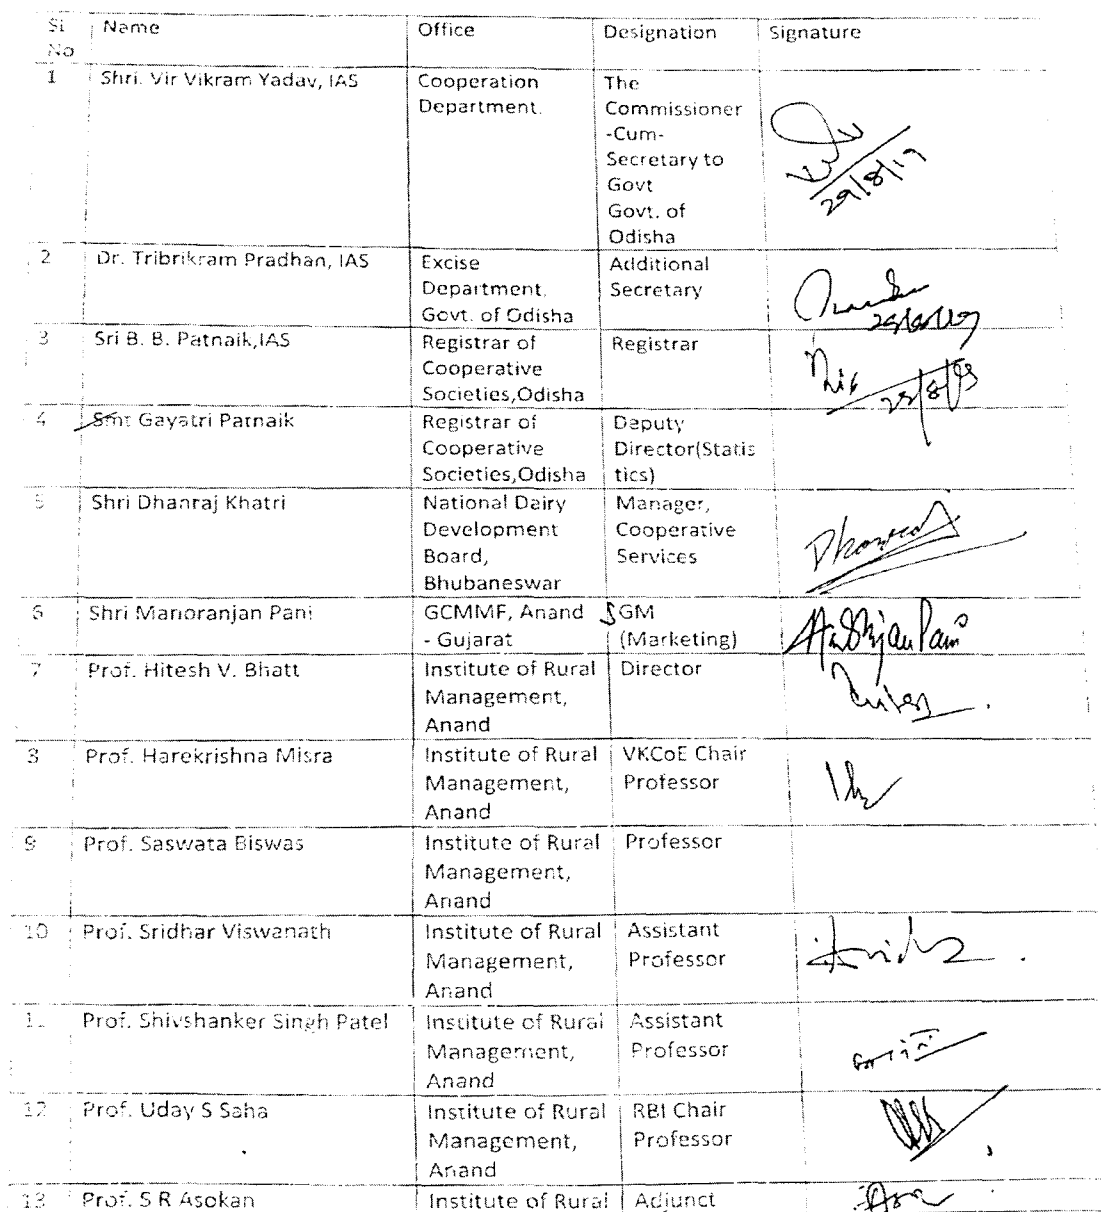 Sl No Name Office Designation Signature
1 Shri. Vir Vikram Yadav, IAS Cooperation Department. The Commissioner -Cum- Secretary to Govt Govt. of Odisha 29/8/19
2 Dr. Tribrikram Pradhan, IAS Excise Department, Govt. of Odisha Additional Secretary
3 Sri B. B. Patnaik,IAS Registrar of Cooperative Societies,Odisha Registrar
4 Smt Gayatri Patnaik Registrar of Cooperative Societies,Odisha Deputy Director(Statis tics)
5 Shri Dhanraj Khatri National Dairy Development Board, Bhubaneswar Manager, Cooperative Services
6 Shri Manoranjan Pani GCMMF, Anand - Gujarat GM (Marketing)
7 Prof. Hitesh V. Bhatt Institute of Rural Management, Anand Director
8 Prof. Harekrishna Misra Institute of Rural Management, Anand VKCoE Chair Professor
9 Prof. Saswata Biswas Institute of Rural Management, Anand Professor
10 Prof. Sridhar Viswanath Institute of Rural Management, Anand Assistant Professor
11 Prof. Shivshanker Singh Patel Institute of Rural Management, Anand Assistant Professor
12 Prof. Uday S Saha Institute of Rural Management, Anand RBI Chair Professor
13 Prof. S R Asokan Institute of Rural Adjunct